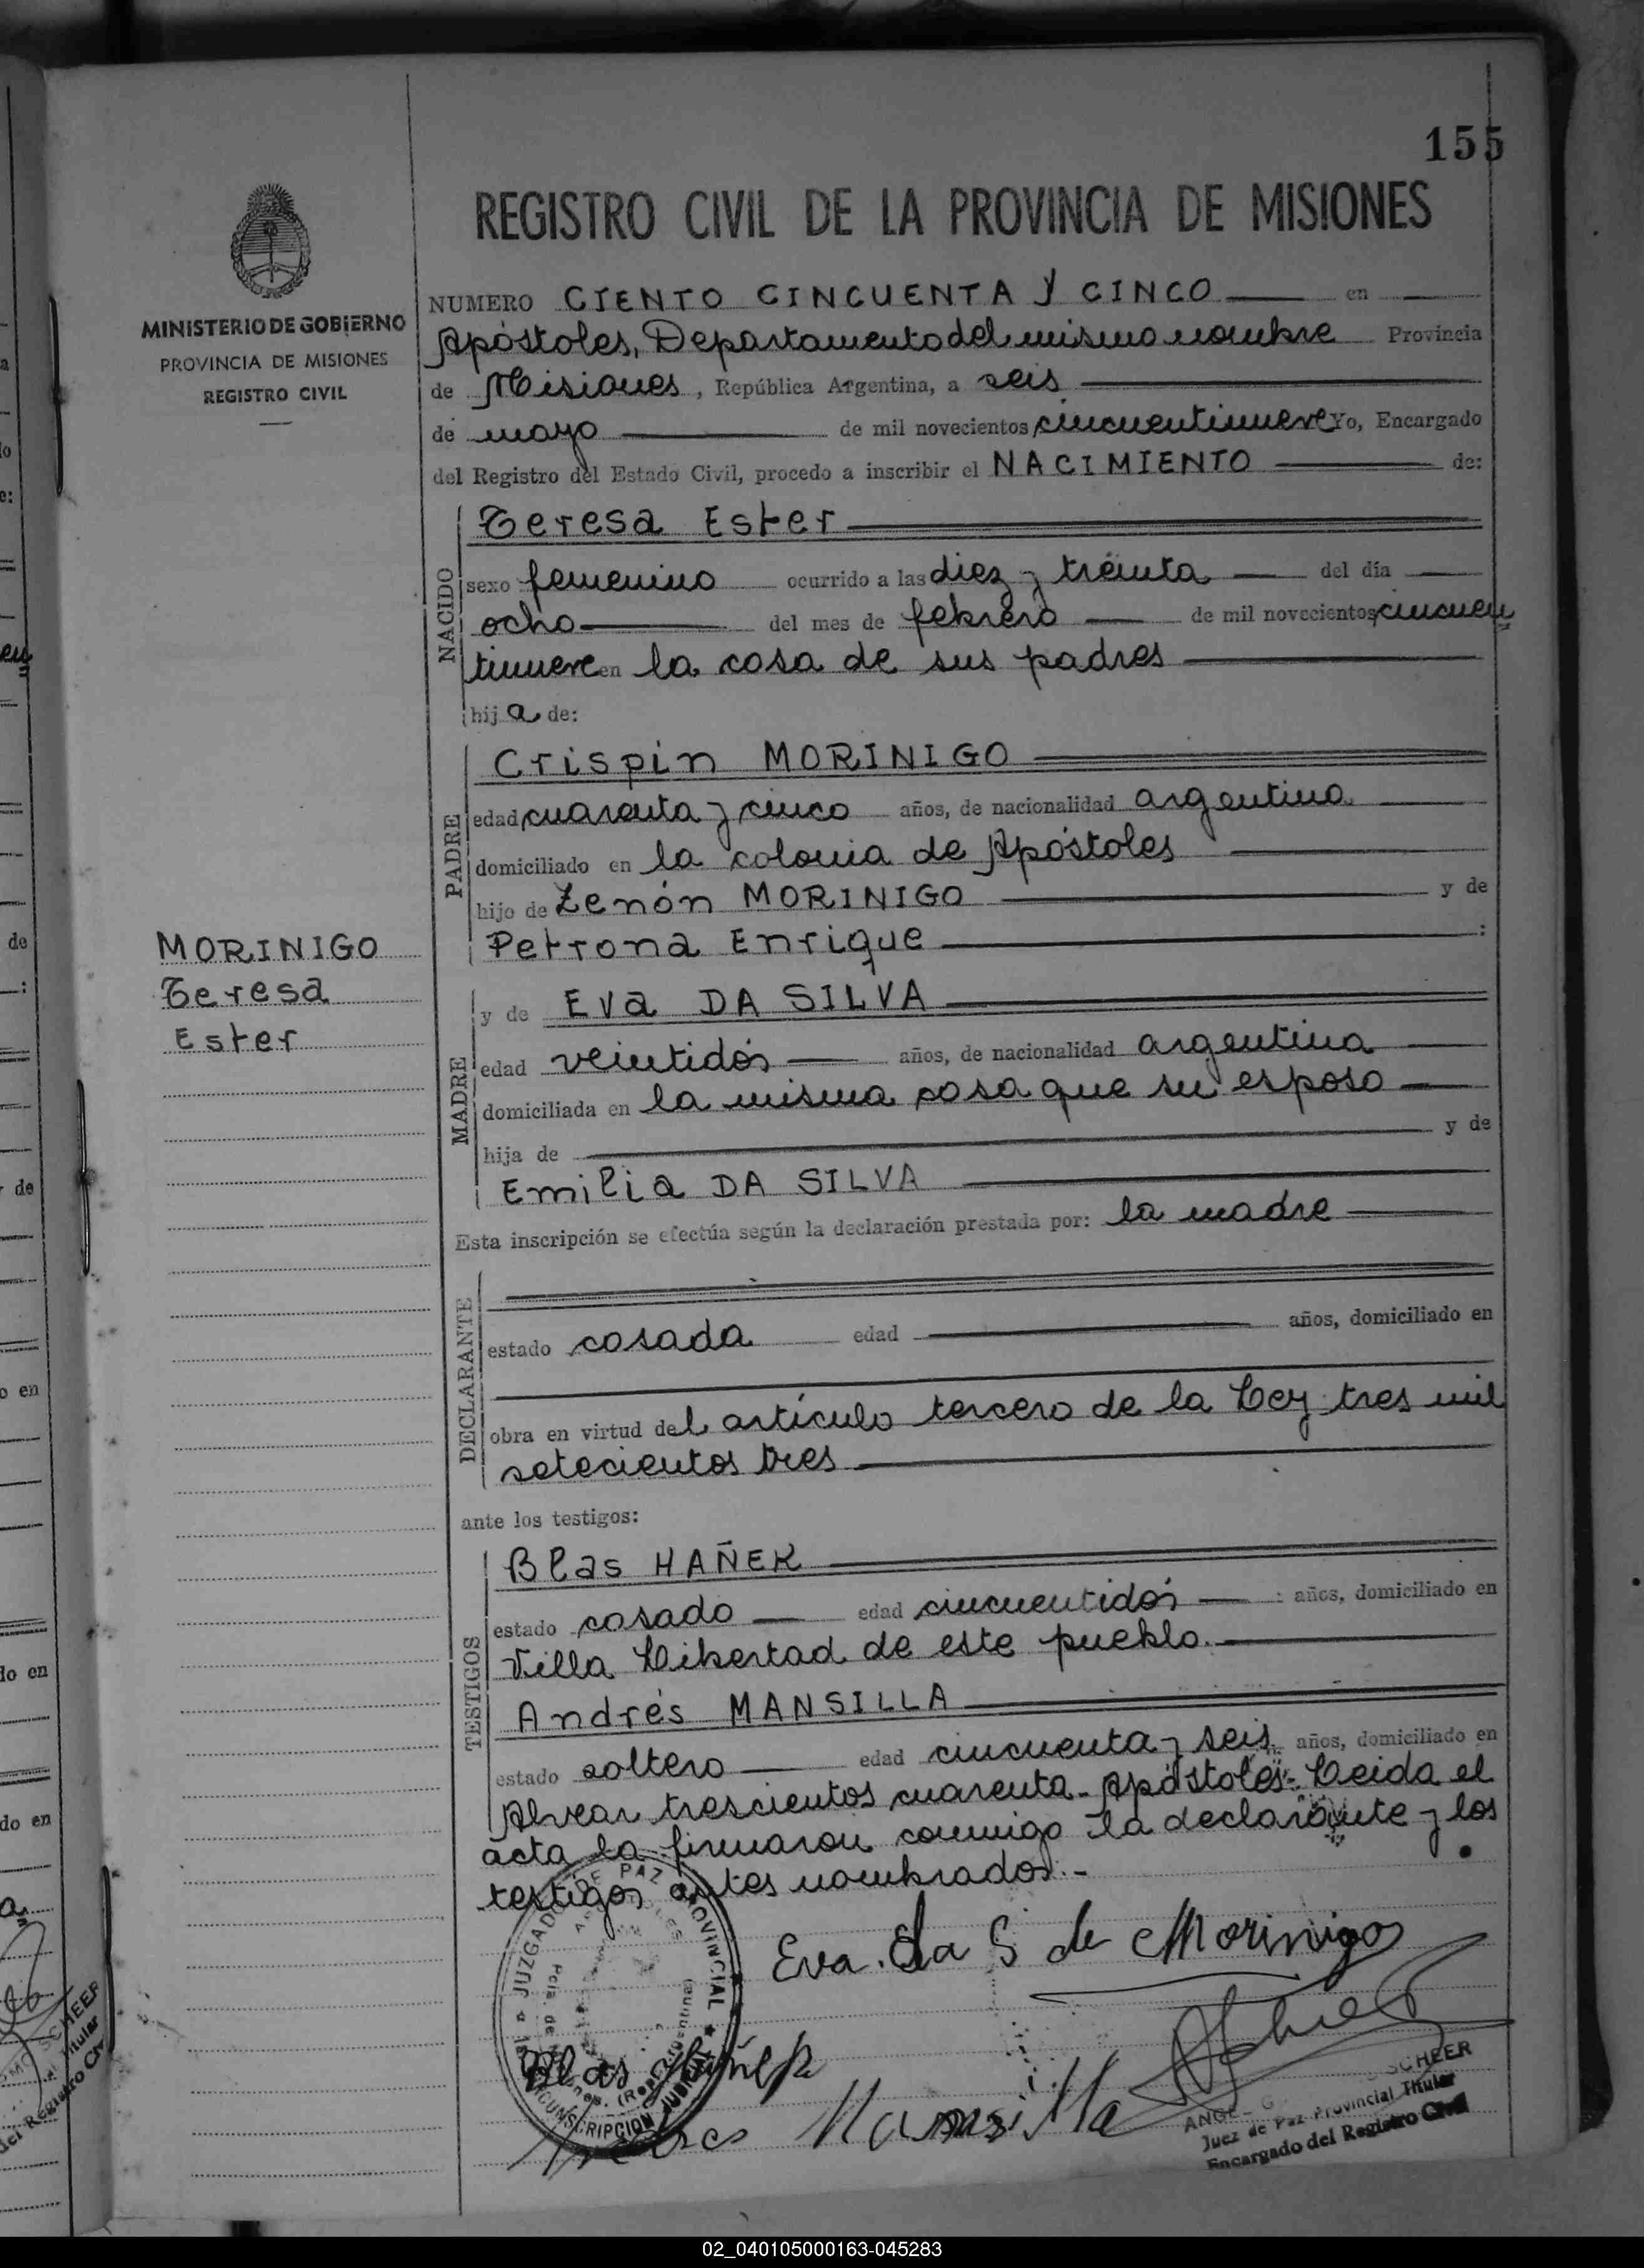 155
REGISTRO CIVIL DE LA PROVINCIA DE MISIONES
MINISTERIO DE GOBIERNO
PROVINCIA DE MISIONES
REGISTRO CIVIL
NUMERO CIENTO CINCUENTA Y CINCO en
Apóstoles, Departamento del mismo nombre Provincia
de Misiones, República Argentina, a seis
de mayo de mil novecientos cincuentinueve Yo, Encargado
del Registro del Estado Civil, procedo a inscribir el NACIMIENTO de:
NACIDO
Teresa Ester
sexo femenino ocurrido a las diez y treinta del día
ocho del mes de febrero de mil novecientos cincuen
tinueve en la casa de sus padres
hija de:
PADRE
Crispin MORINIGO
edad cuarenta y cinco años, de nacionalidad argentina
domiciliado en la colonia de Apóstoles
hijo de Zenón MORINIGO y de
Petrona Enrique :
MORINIGO
Teresa
Ester
MADRE
y de Eva DA SILVA
edad veintidós años, de nacionalidad argentina
domiciliada en la misma casa que su esposo
hija de y de
Emilia DA SILVA
Esta inscripción se efectúa según la declaración prestada por: la madre
DECLARANTE
estado casada edad años, domiciliado en
obra en virtud del artículo tercero de la Ley tres mil
setecientos tres
ante los testigos:
TESTIGOS
Blas HAÑEK
estado casado edad cincuentidós años, domiciliado en
Villa Libertad de este pueblo.
Andrés MANSILLA
estado soltero edad cincuenta y seis años, domiciliado en
Alvear trescientos cuarenta - Apóstoles - Leida el
acta la firmaron conmigo la declarante y los
testigos antes nombrados.-
JUZGADO DE PAZ PROVINCIAL
CIRCUNSCRIPCION JUDICIAL
Eva da S de Morinigo
Blas Hañek
Andres Mansilla
SCHEER
Juez de Paz Provincial Titular
Encargado del Registro Civil
02_040105000163-045283